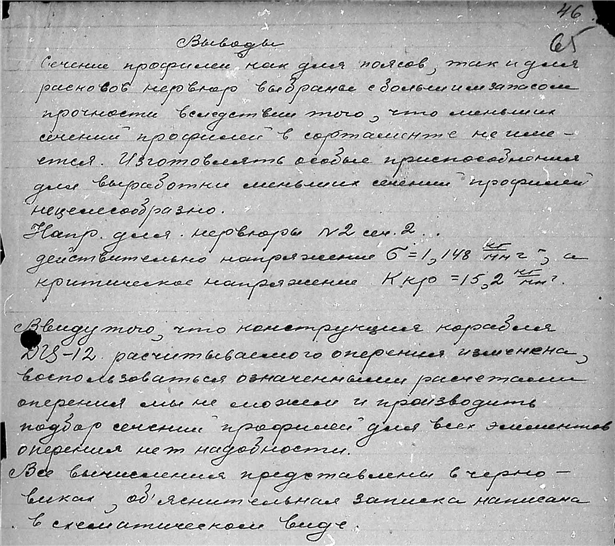 46
65
Выводы
Сечение профилей как для поясов, так и для
раскосов нервюр выбраны с большим запасом
прочности вследствии того, что меньших
сечений профилей в сортаменте не име-
ется. Изготовлять особые приспособления
для выработки меньших сечений профилей
нецелесообразно.
Напр. для нервюры №2 сеч. 2..
действительно напряжение б = 1,148 кг/мм², а
критическое напряжение Kкр = 15,2 кг/мм².
Ввиду того, что конструкция корабля
расчитываемого оперения изменена,
воспользоваться означенными расчетами
оперения мы не можем и производить
подбор сечений профилей для всех элементов
оперения нет надобности.
Все вычисления представлены в черно-
виках, об'яснительная записка написана
в схематическом виде.